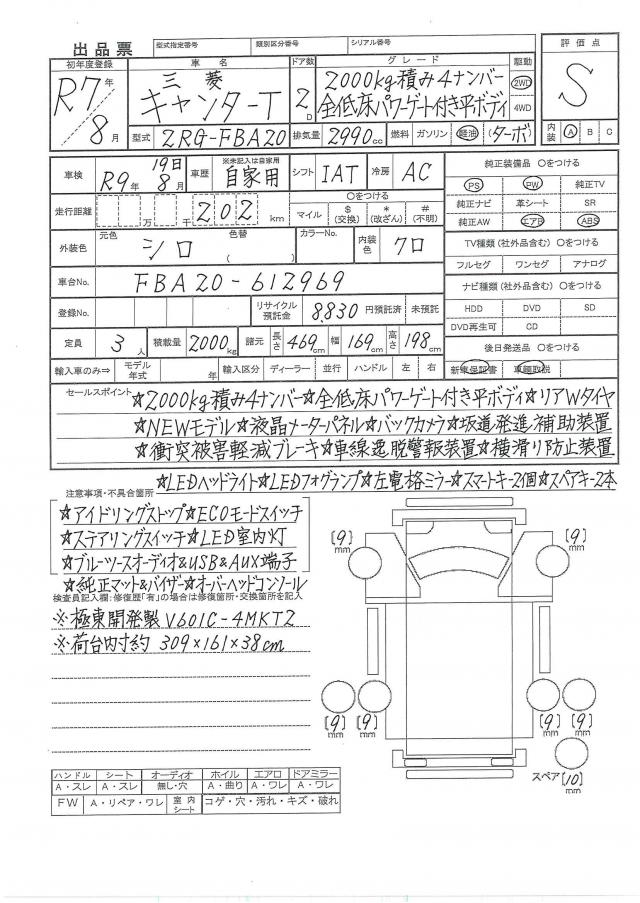 出品票 型式指定番号 類別区分番号 シリアル番号
初年度登録 車名 ドア数 グレード 駆動 評価点
R7年 8月 三菱 キャンターT 2D 2000kg積み4ナンバー 全低床パワーゲート付き平ボディ 2WD 4WD S
型式 2RG-FBA20 排気量 2990cc 燃料 ガソリン 軽油 (ターボ) 内装 A B C
車検 R9年 19日 8月 車歴 ※未記入は自家用 自家用 シフト IAT 冷房 AC 純正装備品 ○をつける
PS PW 純正TV
走行距離 万 千 202 km ○をつける マイル $(交換) *(改ざん) #(不明) 純正ナビ 革シート SR
純正AW エアB ABS
外装色 元色 シロ 色替 ( ) カラーNo. 内装色 クロ TV種類(社外品含む) ○をつける
フルセグ ワンセグ アナログ
車台No. FBA20-612969 ナビ種類(社外品含む) ○をつける
登録No. リサイクル預託金 8,830 円預託済 未預託 HDD DVD SD
DVD再生可 CD
定員 3人 積載量 2000kg 諸元 長さ 469cm 幅 169cm 高さ 198cm 後日発送品 ○をつける
輸入車のみ⇒ モデル年式 年 輸入区分 ディーラー 並行 ハンドル 左 右 新車保証書 車輌取説
セールスポイント ☆2000kg積み4ナンバー☆全低床パワーゲート付き平ボディ☆リアWタイヤ
☆NEWモデル☆液晶メーターパネル☆バックカメラ☆坂道発進補助装置
☆衝突被害軽減ブレーキ☆車線逸脱警報装置☆横滑り防止装置
☆LEDヘッドライト☆LEDフォグランプ☆左電格ミラー☆スマートキー2個☆スペアキー2本
注意事項・不具合箇所
☆アイドリングストップ☆ECOモードスイッチ
☆ステアリングスイッチ☆LED室内灯
☆ブルーツースオーディオ&USB&AUX端子
☆純正マット&バイザー☆オーバーヘッドコンソール
検査員記入欄:修復歴「有」の場合は修復箇所・交換箇所を記入
※極東開発製 V601C-4MKT2
※荷台内寸約 309×161×38cm
[9]mm [9]mm
[9]mm [9]mm [9]mm [9]mm
スペア[10]mm
ハンドル シート オーディオ ホイル エアロ ドアミラー
A・スレ A・スレ 無し・穴 A・曲り A・ワレ A・ワレ
FW A・リペア・ワレ 室内シート コゲ・穴・汚れ・キズ・破れ